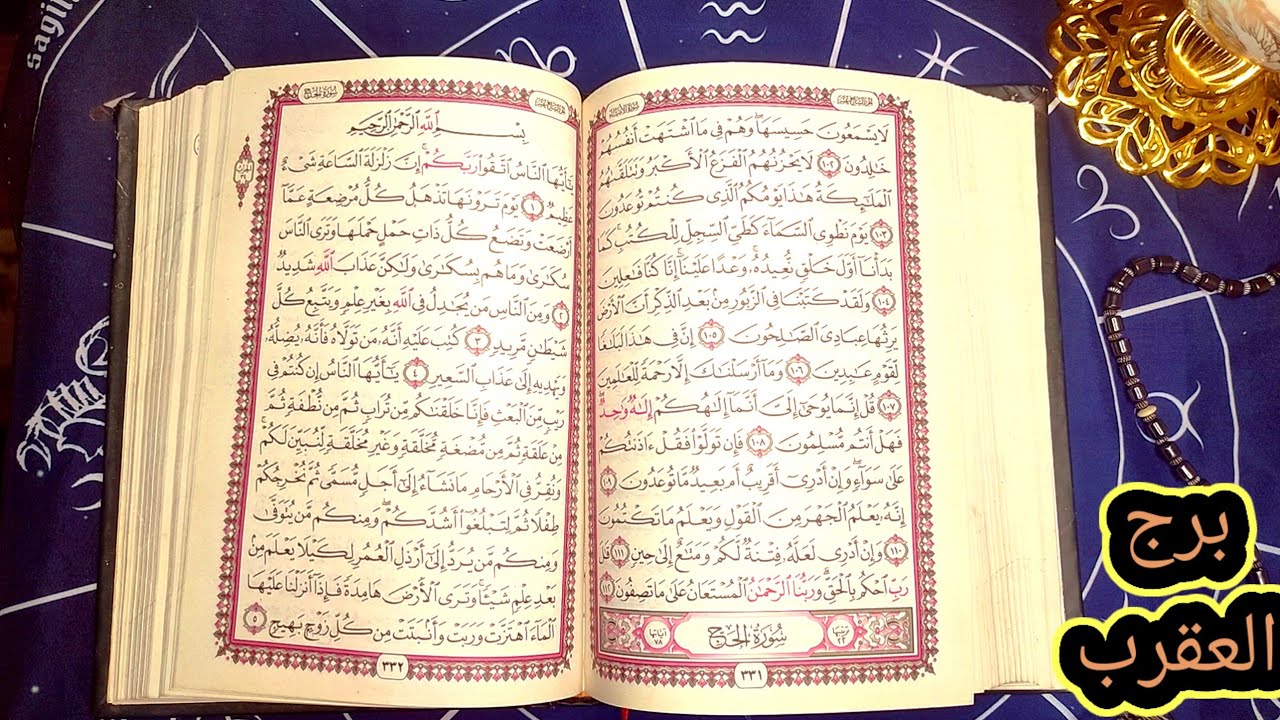 سورة الأنبياء
لَا يَسْمَعُونَ حَسِيسَهَا وَهُمْ فِي مَا اشْتَهَتْ أَنفُسُهُمْ
خَالِدُونَ ١٠٢ لَا يَحْزُنُهُمُ الْفَزَعُ الْأَكْبَرُ وَتَتَلَقَّاهُمُ
الْمَلَائِكَةُ هَٰذَا يَوْمُكُمُ الَّذِي كُنتُمْ تُوعَدُونَ
١٠٣ يَوْمَ نَطْوِي السَّمَاءَ كَطَيِّ السِّجِلِّ لِلْكُتُبِ كَمَا
بَدَأْنَا أَوَّلَ خَلْقٍ نُّعِيدُهُ وَعْدًا عَلَيْنَا إِنَّا كُنَّا فَاعِلِينَ
١٠٤ وَلَقَدْ كَتَبْنَا فِي الزَّبُورِ مِن بَعْدِ الذِّكْرِ أَنَّ الْأَرْضَ
يَرِثُهَا عِبَادِيَ الصَّالِحُونَ ١٠٥ إِنَّ فِي هَٰذَا لَبَلَاغًا
لِّقَوْمٍ عَابِدِينَ ١٠٦ وَمَا أَرْسَلْنَاكَ إِلَّا رَحْمَةً لِّلْعَالَمِينَ
١٠٧ قُلْ إِنَّمَا يُوحَىٰ إِلَيَّ أَنَّمَا إِلَٰهُكُمْ إِلَٰهٌ وَاحِدٌ
فَهَلْ أَنتُم مُّسْلِمُونَ ١٠٨ فَإِن تَوَلَّوْا فَقُلْ آذَنتُكُمْ
عَلَىٰ سَوَاءٍ وَإِنْ أَدْرِي أَقَرِيبٌ أَم بَعِيدٌ مَّا تُوعَدُونَ ١٠٩
إِنَّهُ يَعْلَمُ الْجَهْرَ مِنَ الْقَوْلِ وَيَعْلَمُ مَا تَكْتُمُونَ
١١٠ وَإِنْ أَدْرِي لَعَلَّهُ فِتْنَةٌ لَّكُمْ وَمَتَاعٌ إِلَىٰ حِينٍ ١١١ قَالَ
رَبِّ احْكُم بِالْحَقِّ وَرَبُّنَا الرَّحْمَٰنُ الْمُسْتَعَانُ عَلَىٰ مَا تَصِفُونَ ١١٢
سُورَةُ الحَجِّ
آياتها ٧٨
٣٣١
سورة الحج
بِسْمِ اللَّهِ الرَّحْمَٰنِ الرَّحِيمِ
يَا أَيُّهَا النَّاسُ اتَّقُوا رَبَّكُمْ إِنَّ زَلْزَلَةَ السَّاعَةِ شَيْءٌ
عَظِيمٌ ١ يَوْمَ تَرَوْنَهَا تَذْهَلُ كُلُّ مُرْضِعَةٍ عَمَّا
أَرْضَعَتْ وَتَضَعُ كُلُّ ذَاتِ حَمْلٍ حَمْلَهَا وَتَرَى النَّاسَ
سُكَارَىٰ وَمَا هُم بِسُكَارَىٰ وَلَٰكِنَّ عَذَابَ اللَّهِ شَدِيدٌ
٢ وَمِنَ النَّاسِ مَن يُجَادِلُ فِي اللَّهِ بِغَيْرِ عِلْمٍ وَيَتَّبِعُ كُلَّ
شَيْطَانٍ مَّرِيدٍ ٣ كُتِبَ عَلَيْهِ أَنَّهُ مَن تَوَلَّاهُ فَأَنَّهُ يُضِلُّهُ
وَيَهْدِيهِ إِلَىٰ عَذَابِ السَّعِيرِ ٤ يَا أَيُّهَا النَّاسُ إِن كُنتُمْ فِي
رَيْبٍ مِّنَ الْبَعْثِ فَإِنَّا خَلَقْنَاكُم مِّن تُرَابٍ ثُمَّ مِن نُّطْفَةٍ ثُمَّ
مِنْ عَلَقَةٍ ثُمَّ مِن مُّضْغَةٍ مُّخَلَّقَةٍ وَغَيْرِ مُخَلَّقَةٍ لِّنُبَيِّنَ لَكُمْ
وَنُقِرُّ فِي الْأَرْحَامِ مَا نَشَاءُ إِلَىٰ أَجَلٍ مُّسَمًّى ثُمَّ نُخْرِجُكُمْ
طِفْلًا ثُمَّ لِتَبْلُغُوا أَشُدَّكُمْ وَمِنكُم مَّن يُتَوَفَّىٰ
وَمِنكُم مَّن يُرَدُّ إِلَىٰ أَرْذَلِ الْعُمُرِ لِكَيْلَا يَعْلَمَ مِن
بَعْدِ عِلْمٍ شَيْئًا وَتَرَى الْأَرْضَ هَامِدَةً فَإِذَا أَنزَلْنَا عَلَيْهَا
الْمَاءَ اهْتَزَّتْ وَرَبَتْ وَأَنبَتَتْ مِن كُلِّ زَوْجٍ بَهِيجٍ ٥
٣٣٢
برج
العقرب